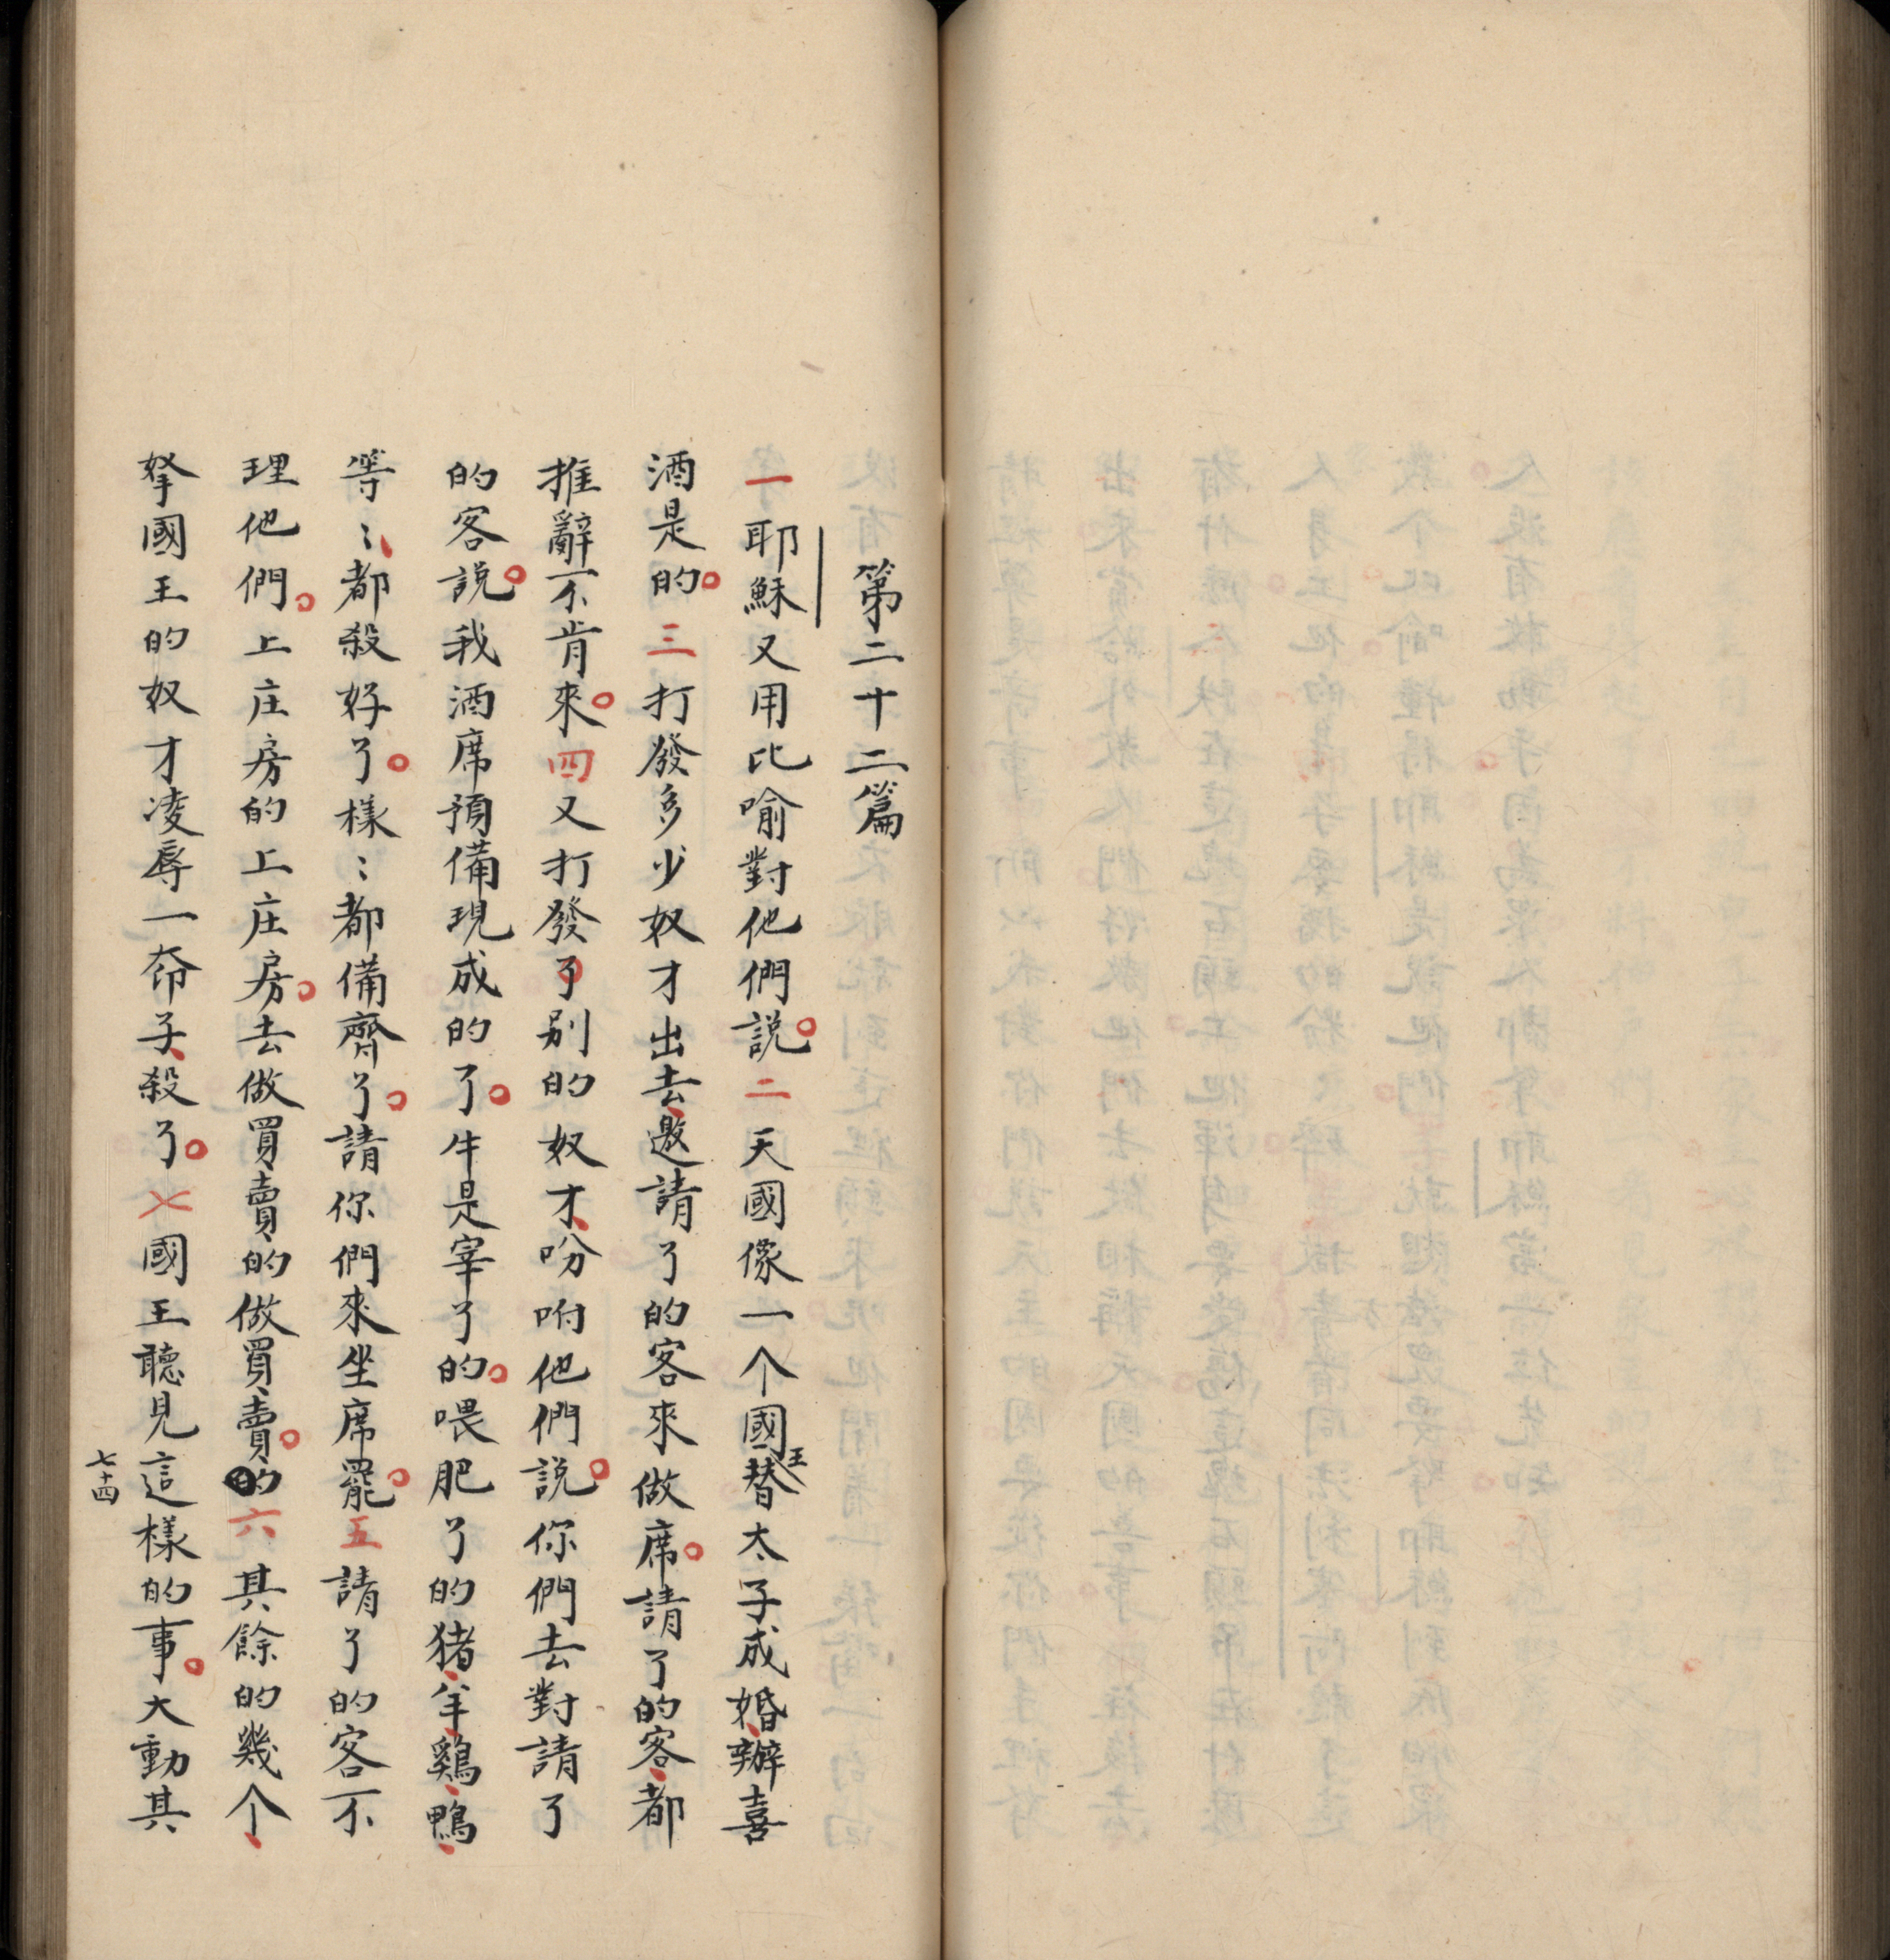 第二十二篇
一耶穌又用比喻對他們說。二天國像一个國王替太子成婚、辦喜
酒是的。三打發多少奴才出去、邀請了的客來做席。請了的客、都
推辭不肯來。四又打發了别的奴才、吩咐他們說。你們去對請了
的客說。我酒席預備現成的了。牛是宰了的。喂肥了的猪、羊、鷄、鴨、
等〻、都殺好了。樣〻都備齊了。請你們來坐席罷。五請了的客不
理他們。上庄房的上庄房。去做買賣的做買賣。的六其餘的幾个、
拏國王的奴才凌辱一夼子、殺了。七國王聽見這樣的事。大動其
七十四